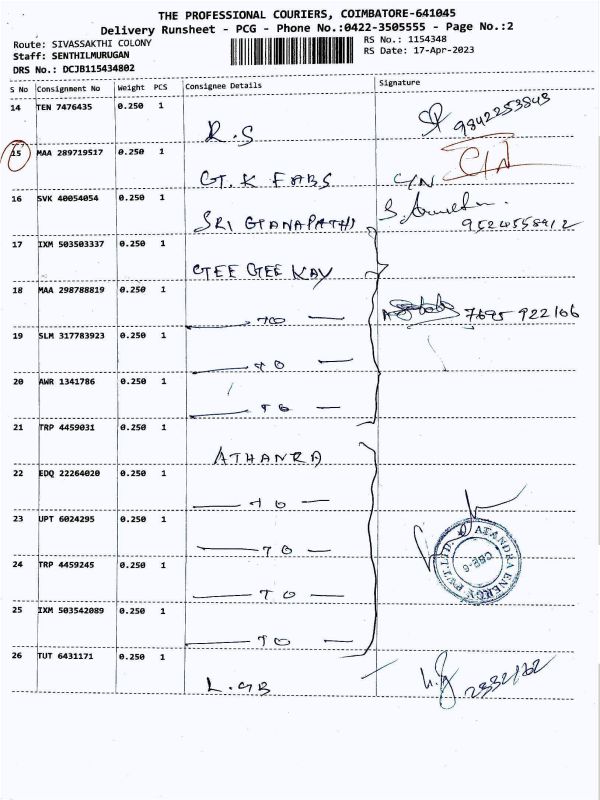 THE PROFESSIONAL COURIERS, COIMBATORE-641045
Delivery Runsheet - PCG - Phone No.:0422-3505555 - Page No.:2
Route: SIVASSAKTHI COLONY
RS No.: 1154348
Staff: SENTHILMURUGAN
RS Date: 17-Apr-2023
DRS No.: DCJB115434802
S No Consignment No Weight PCS Consignee Details Signature
14 TEN 7476435 0.250 1
R.S 9842253843
15 MAA 289719517 0.250 1
GT.K FABS C/N C/N
16 SVK 40054054 0.250 1
SRI GANAPATHI
17 IXM 503503337 0.250 1
GEE GEE KAY
18 MAA 298788819 0.250 1
TO 7695 922166
19 SLM 317783923 0.250 1
TO
20 AWR 1341786 0.250 1
TO
21 TRP 4459031 0.250 1
ATHANRA
22 EDQ 22264020 0.250 1
TO
23 UPT 6024295 0.250 1
TO
24 TRP 4459245 0.250 1
TO
ATANDRA ENERGY PVT.LTD.
CBE-6
25 IXM 503542089 0.250 1
TO
26 TUT 6431171 0.250 1
L.GB